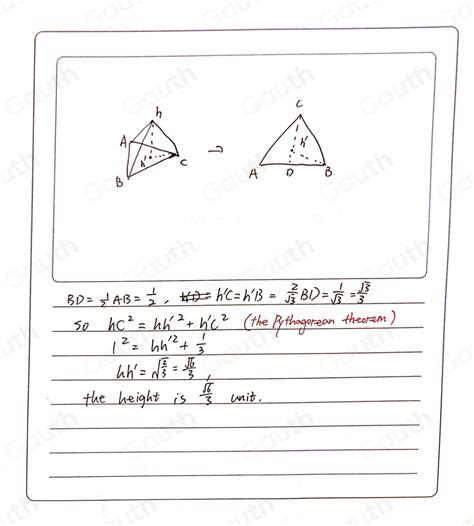 h
A
h'
C
B
C
h'
A
D
B
BD = 1/2 AB = 1/2, h'C = h'B = 2/√3 BD = 1/√3 = √3/3
so hC² = hh'² + h'C² (the Pythagorean theorem)
1² = hh'² + 1/3
hh' = √(2/3) = √6/3
the height is √6/3 unit.
Gauth